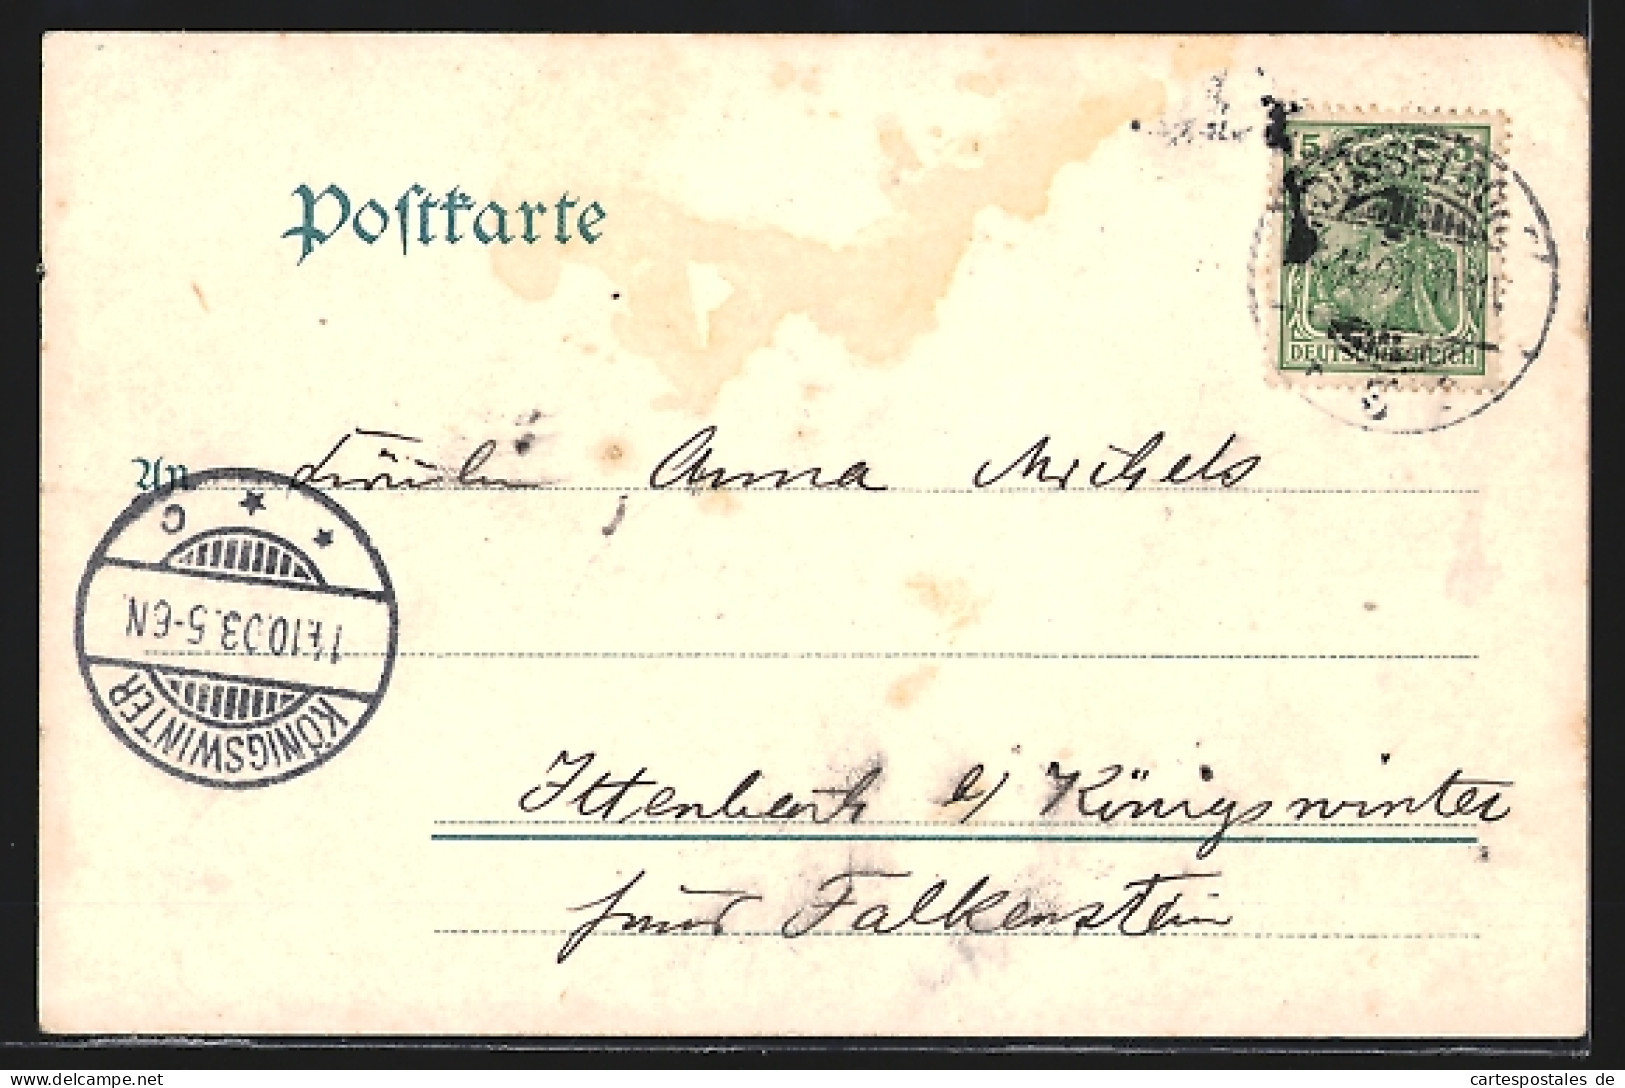 Postkarte
5 5
DÜSSELDORF
DEUTSCHES REICH
An Fräulein Anna Michels
C
11.10.03.5-6N.
KÖNIGSWINTER
Ittenbach b/ Königswinter
Falkenstein
cartespostales de